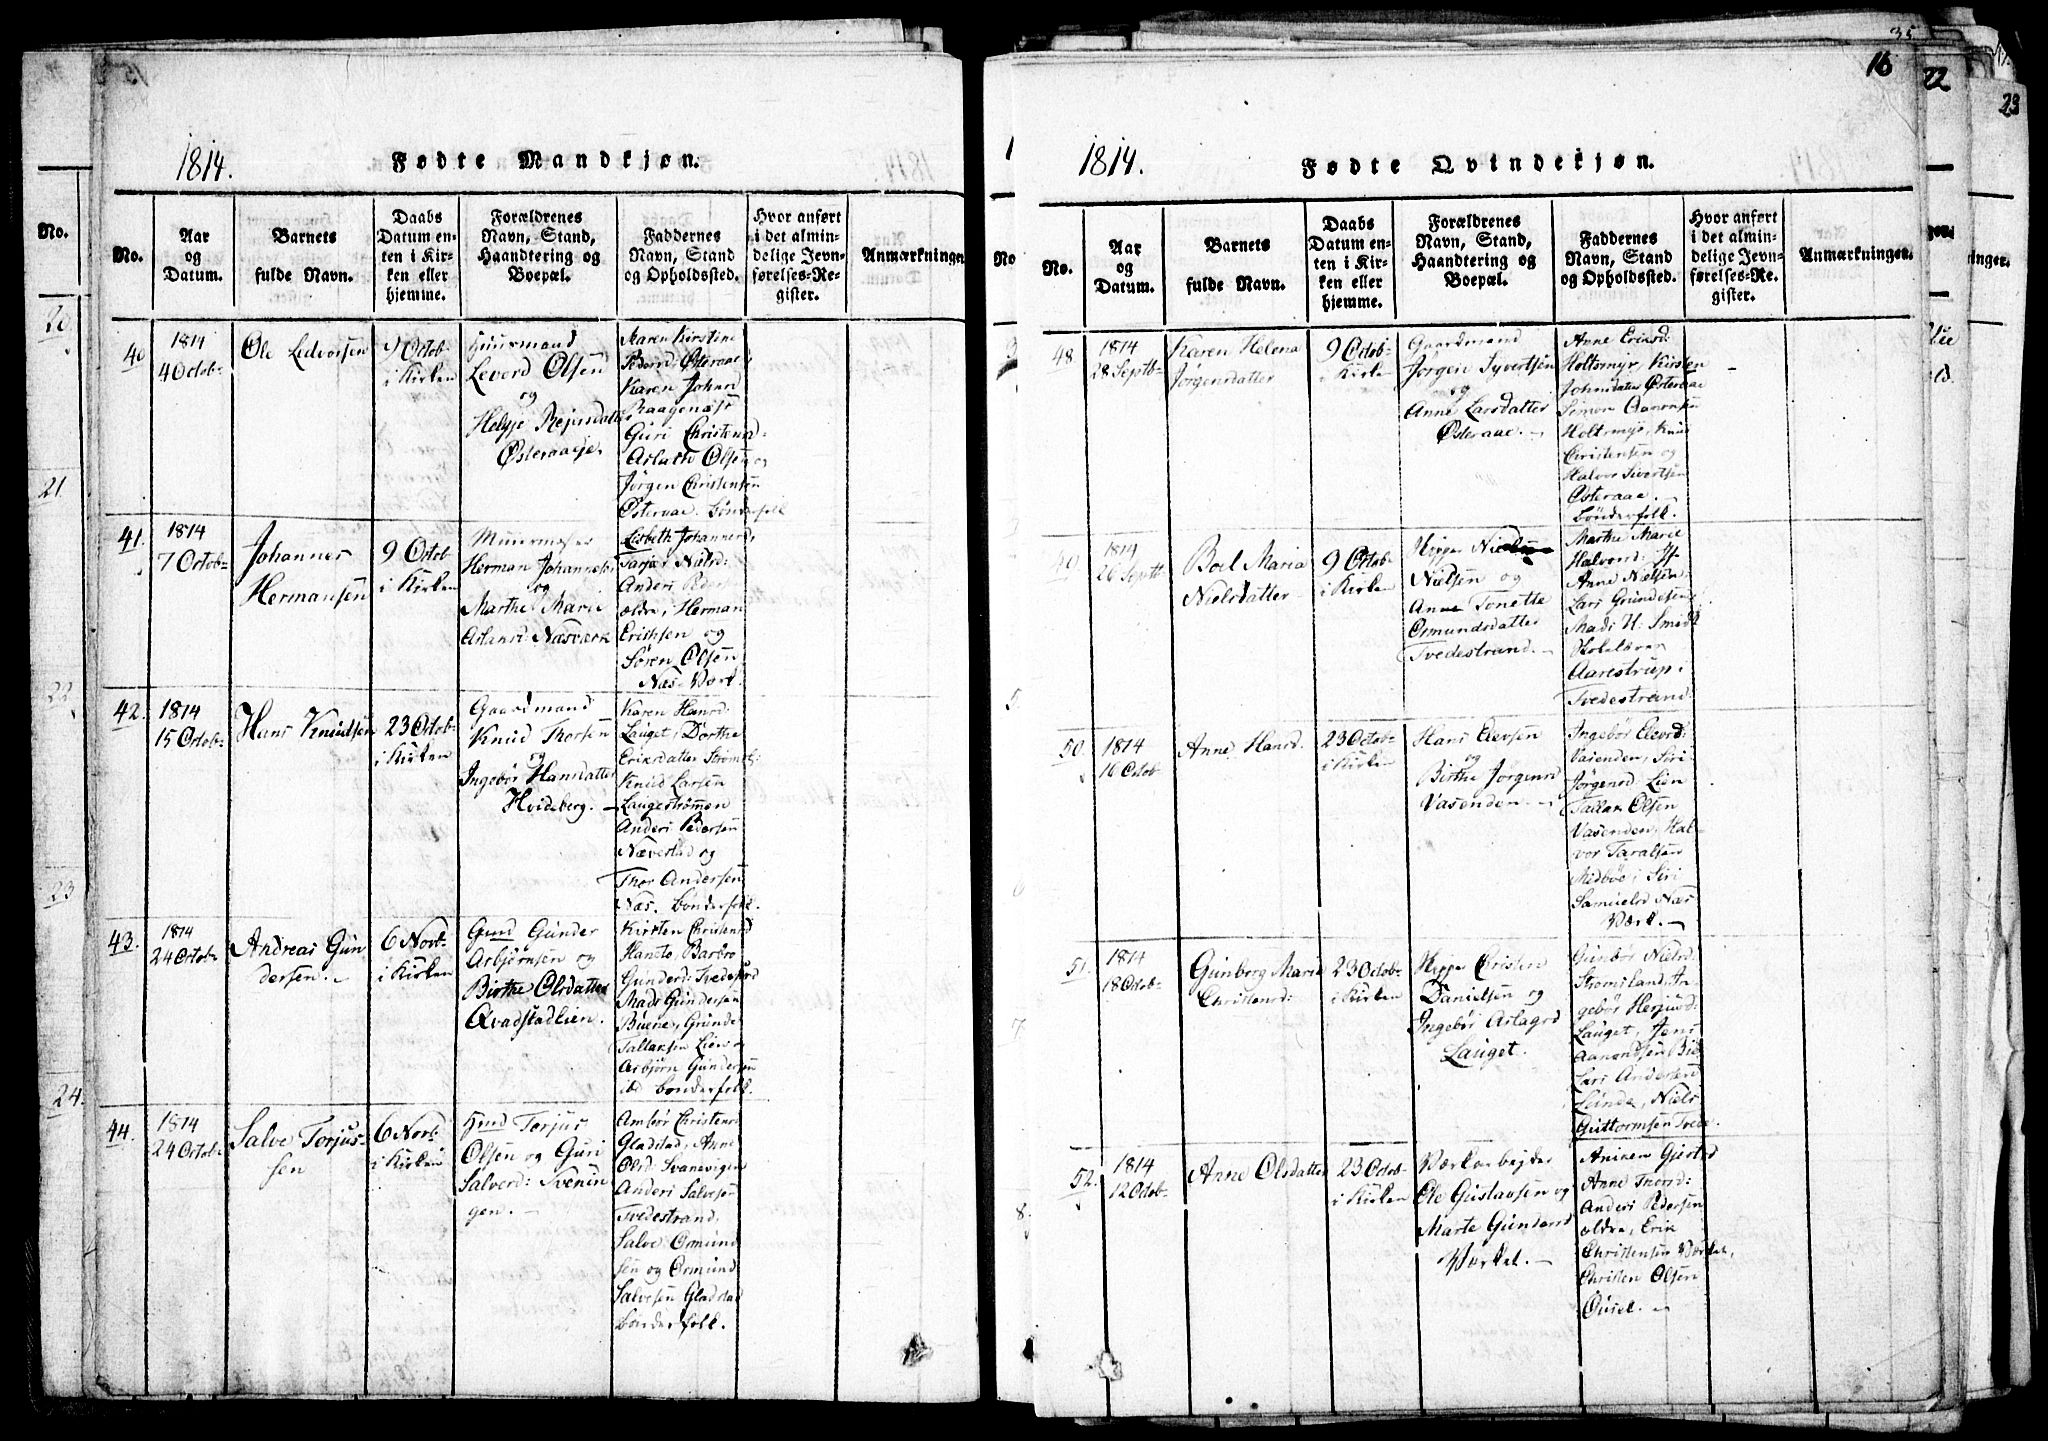 1814.
Fødte Mandkjøn.
No.
Aar
og
Datum.
Barnets
fulde Navn.
Daabs
Datum en-
ten i Kir-
ken eller
hjemme.
Forældrenes
Navn, Stand,
Haandtering og
Boepæl.
Faddernes
Navn, Stand
og Opholdssted.
Hvor anført
i det almin-
delige Jevn-
førelses-Re-
gister.
Anmærkninger
40
1814
4 Octob-
Ole Ledvorsen
9 Octob-
i Kirken
Huusmand
Leverd Olsen
og
Østeraae
Karen Kirstine
Pedersd. Østeraae
Karen Johansd
Guri Christensd:
Aslach Olsen og
Jørgen Christensen
Østeraae. Bønderfolk
41.
1814
7 Octob-
Johannes
Hermansen
9 Octob-
i Kirken
Herman Johannesen
og
Marthe Marie
Aslansd Næsværk
Lisbeth Johannesd,
Tarjæ Nielsd:
Anders Peders
ældre, Herman
Erichsen og
Søren Olsen
Næs Værk.
42.
1814
15 Octob-
Hans Knudsen
23 Octob-
i Kirken
Gaardmand
Knud Thorsen
og
Ingebør Hansdatter
Hvideberg. -
Karen Hansd:
Lauget, Dorthe
Eriksdatter Strømst:
Knud Larsen
Laugestrømmen
Anders Pedersen
Næverstad og
Thor Andersen
Næs. Bønderfolk.
43.
1814
24 Octob-
Andreas Gun
dersen. -
6 Novb-
i Kirken
Gmd Gunder
Asbjørnsen og
Birthe Olsdatter
Qvadstadlien.
Kirsten Christensd
Hansto, Barbro
Gundersd: Tvedejord
Mads Gundersen
Buene, Gunde
Tallaksen Lien og
Asbjørn Gundersen
ibd Bønderfolk.
44.
1814
24 Octob-
Salve Torjus-
sen
6 Novb-
i Kirken
Hmd Torjus
Olsen og Guri
Salvesd: Svenin
gen. -
Ambør Christensd
Gladstad, Anne
Olsd. Svanevigen
Anders Salvesen
Tvedestrand,
Salve Osmund
sen og Osmund
Salvesen Gladstad
Bønderfolk.
20
21
22
23
24.
16
1814.
Fødte Qvindekjøn.
No.
Aar
og
Datum.
Barnets
fulde Navn.
Daabs
Datum en-
ten i Kir-
ken eller
hjemme.
Forældrenes
Navn, Stand,
Haandtering og
Boepæl.
Faddernes
Navn, Stand
og Opholdssted.
Hvor anført
i det almin-
delige Jevn-
førelses-Re-
gister.
Anmærkninger.
48.
1814
28 Septb-
Karen Helena
Jørgensdatter
9 Octob-
i Kirken
Gaardmand
Jørgen Syvertsen
og
Anne Larsdatter
Østeraae. -
Anne Eriksd:
Holtsmyr, Kirsten
Johnsdatter Østeraae
Simon Aanonsen
Holtsmyr, Knud
Christensen og
Halvor Sivertsen
Østeraae. -
Bønderfolk.
1814
26 Septb
Boel Maria
Nielsdatter
9 Octob-
i Kirken
Nielsen og
Anne Tonette
Osmundsdatter
Tvedestrand. -
Marthe Marie
Halvorsd:
Anne Nielsen,
Lars Gundesen,
Mads H: Smidt
Aarestrup,
Tvedestrand.
50.
1814
16 Octob
Anne Hansd.
23 Octob-
i Kirken
Hans Elevsen
og
Birthe Jørgensd
Vasenden. -
Ingebør Elevsd:
Vasenden, Siri
Jørgensd Lien
Tallak Olsen
Vasenden, Hal-
vor Taralsen
Midbøe, Siri
Samuelsd Næs
Værk. -
51.
1814
18 Octob-
Gunborg Marie
Christensd:
23 Octob-
i Kirken
Christen
Danielsen og
Ingebør Aslagsd
Lauget.
Gunbør Nielsd.
Strømsland, In-
gebør Herjusd:
Lauget, Jens
Aanondsen
Lars Andersen
Lunde, Niels
Guttormsen Tvede.
52.
1814
12 Octob-
Anne Olsdatter
23 Octob-
i Kirken
Værksarbejder
Ole Gustavsen og
Marte Gundersd
Værket. -
Aniken Gjersd
Anne Thorsd:
Anders Pedersen
ældre, Erik
Christensen Værket,
Christen Olsen
22
23